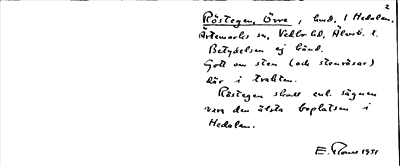 2
Röstegen, Övre, hmd. i Hedalen,
Ärtemarks sn, Vedbo hd, Älvsb. l.
Betydelsen ej känd.
Gott om sten (och stenrösar)
där i trakten.
Röstegen skall enl. sägnen
vara den älsta boplatsen i
Hedalen.
E. 1951